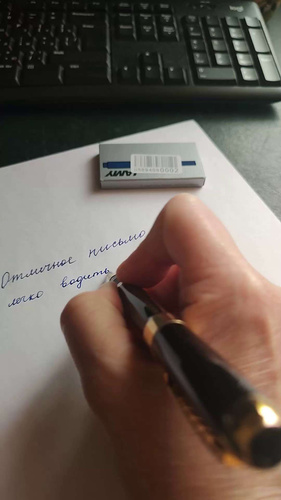 LAMY
Отличное письмо
легко водить